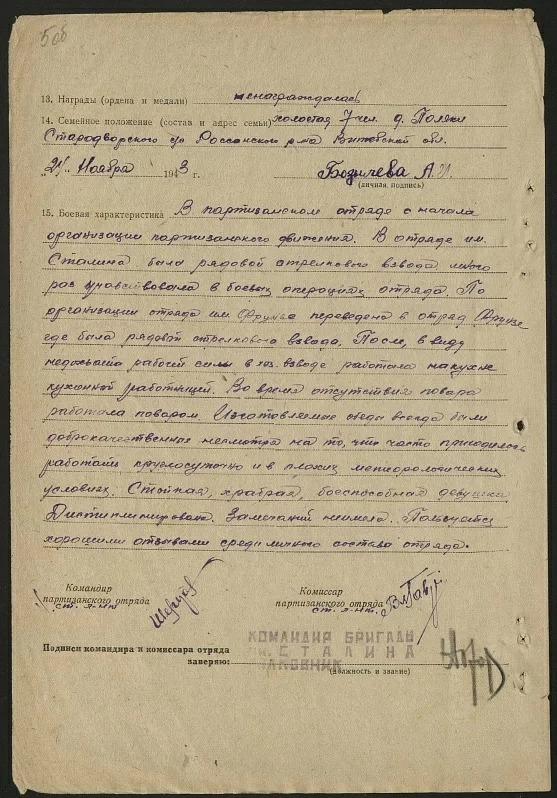 5об
13. Награды (ордена и медали) ненаграждалась
14. Семейное положение (состав и адрес семьи) холостая 7 чел. д. Поляки
Стародворского с/с Россонского р-на Витебской обл.
„24" Ноября 1943 г. А.И.
(личная подпись)
15. Боевая характеристика В партизанском отряде с начала
организации партизанского движения. В отряде им.
Сталина была рядовой стрелкового взвода много
раз участвовала в боевых операциях отряда. По
организации отряда им Фрунзе переведена в отряд Фрунзе
где была рядовой стрелкового взвода. После, в виду
недостатка рабочей силы в хоз. взводе работала на кухне
кухонной работницей. Во время отсутствия повара
работала поваром. Изготовляемые обеды всегда были
доброкачественные несмотря на то, что часто приходилось
работать круглосуточно и в плохих метеорологических
условиях. Стойкая, храбрая, боеспособная девушка
Дисциплинирована. Замечаний неимела. Пользуется
хорошими отзывами среди личного состава отряда.
Командир
партизанского отряда
ст. л-нт
Комиссар
партизанского отряда
ст. л-нт.
КОМАНДИР БРИГАДЫ
ИМ. СТАЛИНА
Подписи командира и комиссара отряда
заверяю:
(должность и звание)